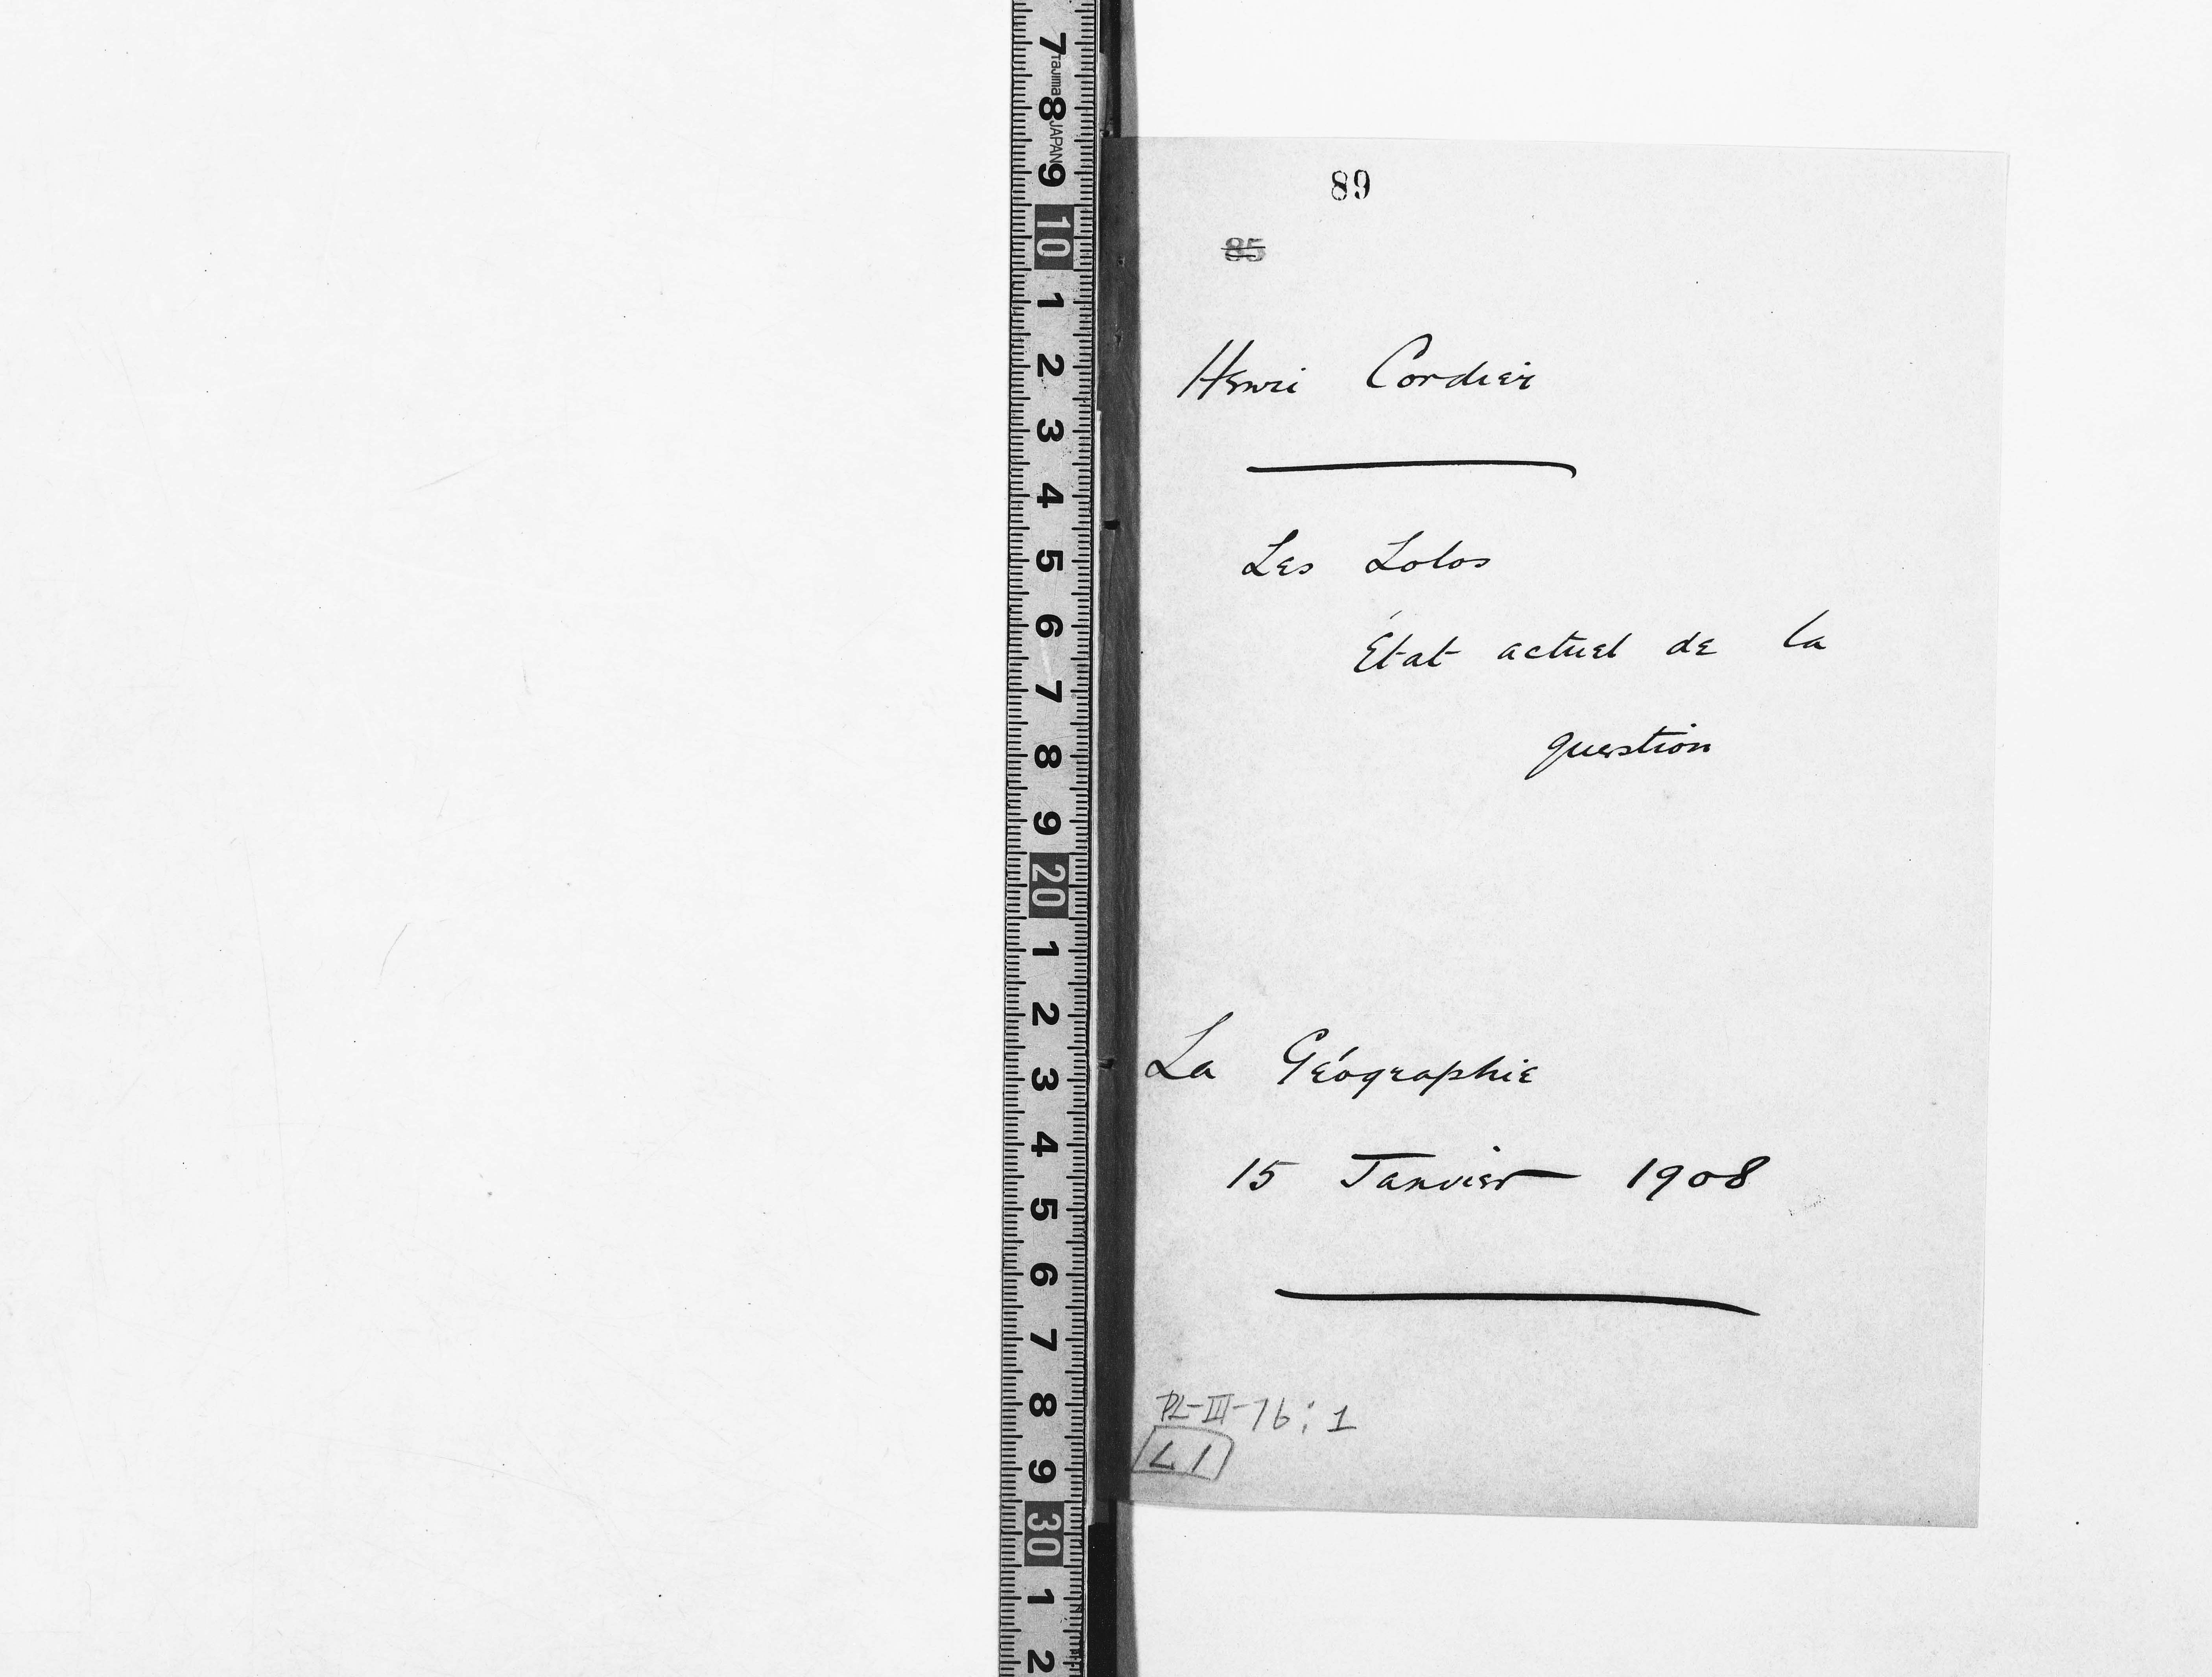 89
85
Henri Cordier
Les Lolos
État actuel de la
question
La Géographie
15 Janvier 1908
PL-III-76:1
L1
7 Tajima 8 JAPAN 9 10 1 2 3 4 5 6 7 8 9 20 1 2 3 4 5 6 7 8 9 30 1 2